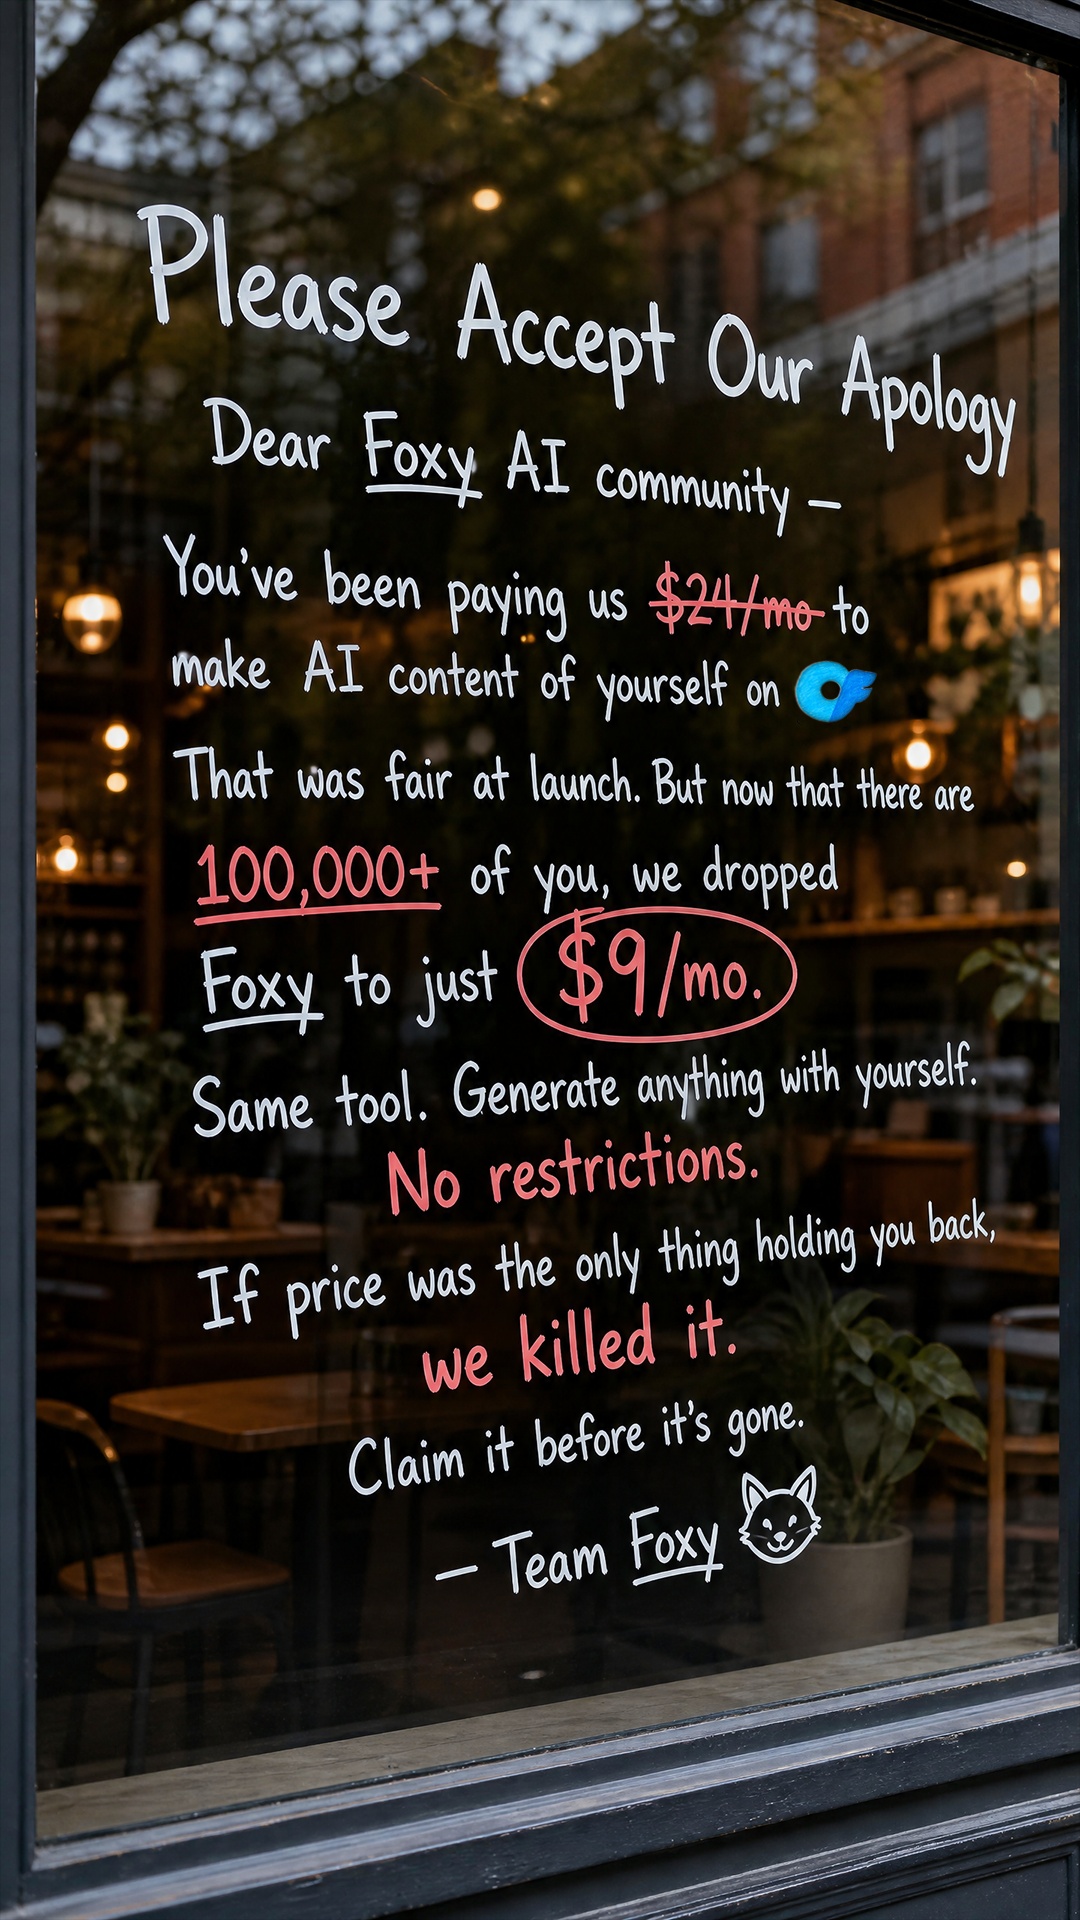 Please Accept Our Apology
Dear Foxy AI community –
You've been paying us $24/mo to
make AI content of yourself on
That was fair at launch. But now that there are
100,000+ of you, we dropped
Foxy to just $9/mo.
Same tool. Generate anything with yourself.
No restrictions.
If price was the only thing holding you back,
we killed it.
Claim it before it's gone.
– Team Foxy